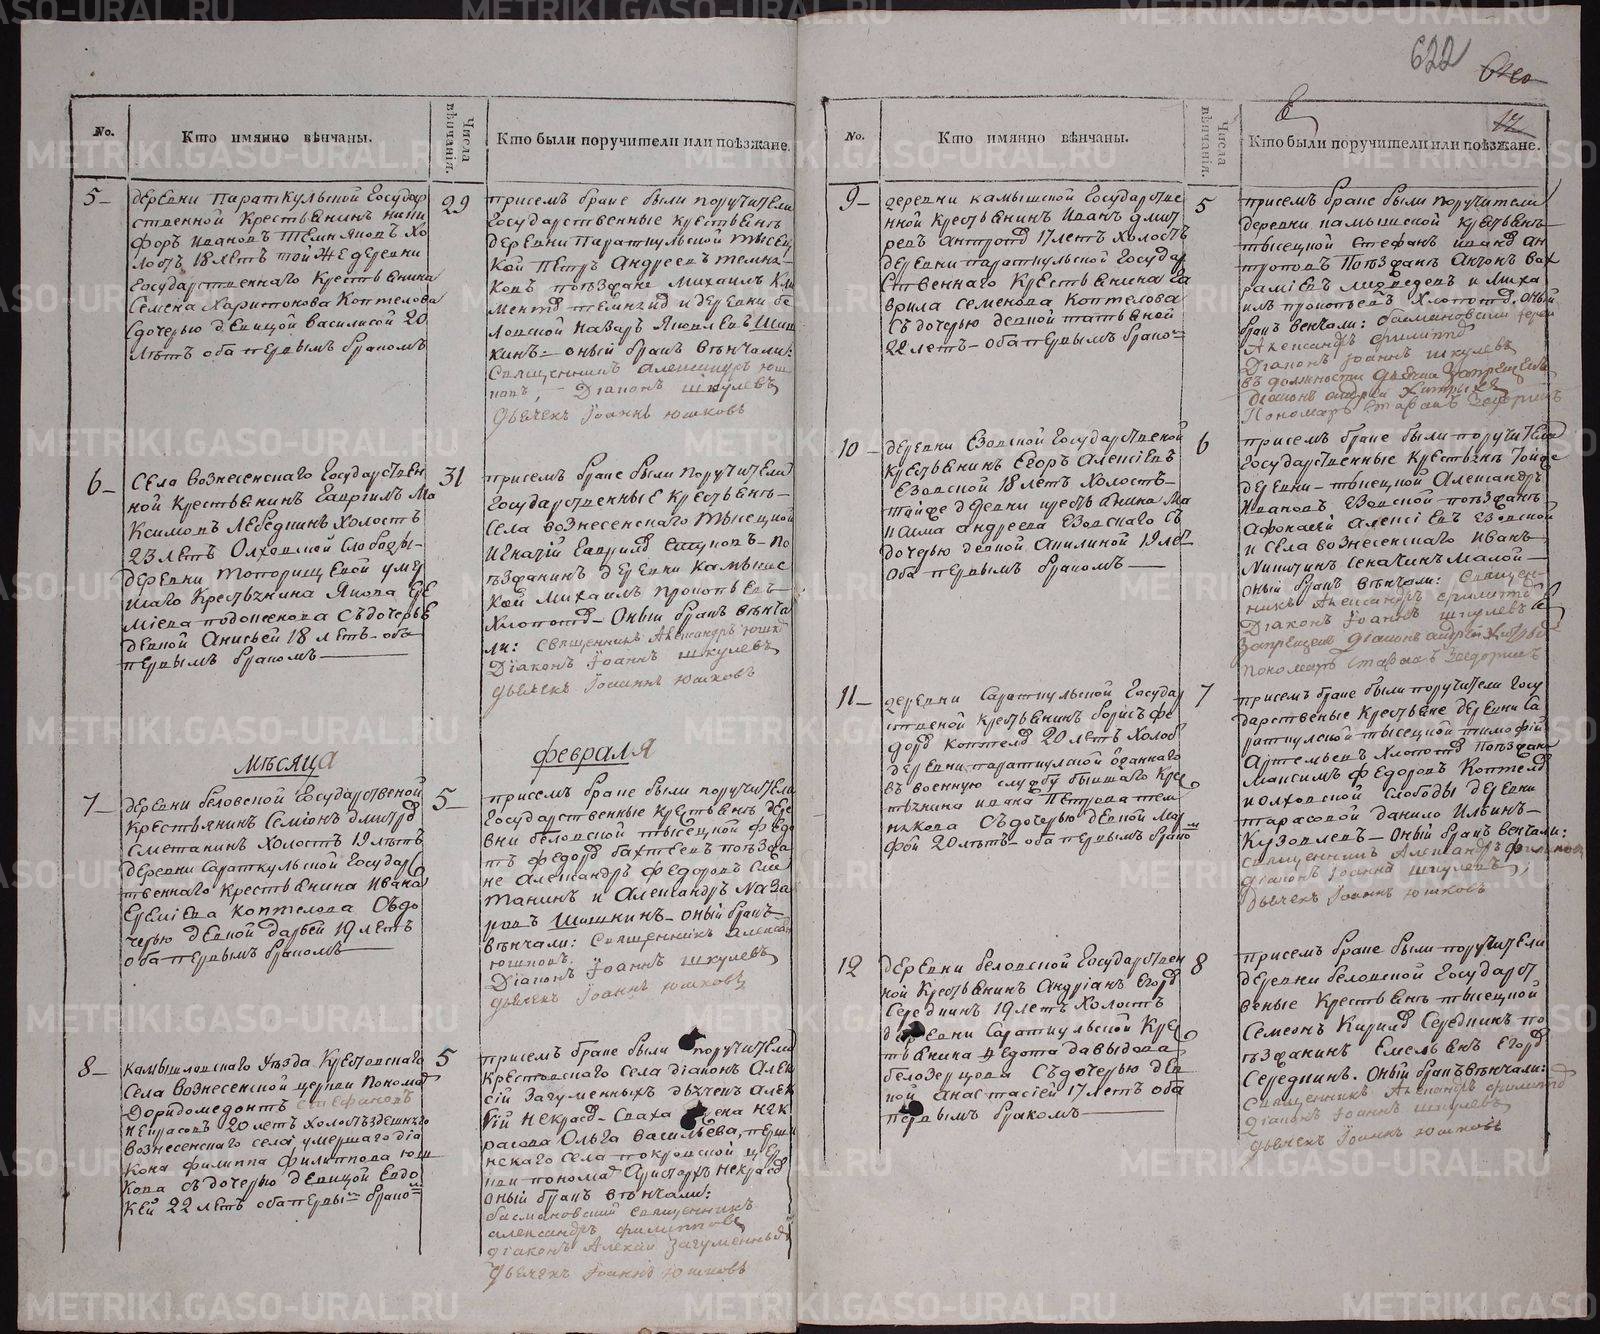 622
No.
Кто имянно вѣнчаны.
Числа вѣнчанія.
Кто были поручители или поѣзжане.
5
деревни Параткульской Государ
ственной Крестьянинъ Ники
форъ Ивановъ Темняковъ хо
лостъ 18 лѣтъ той же деревни
Государственнаго Крестьянина
Семена Харитонова Коптелова
съ дочерью дѣвицой Василисой 20
лѣтъ оба первымъ бракомъ
29
при семъ браке были поручители
Государственные крестьянъ
деревни Параткульской тысец
кой Петръ Андреевъ Темня
ковъ поѣзжане Михаилъ Кли
и деревни бе
ловской Назаръ Яковлевъ Шиш
кинъ оный бракъ вѣнчали:
Священникъ Александръ Юш
ковъ, Діаконъ Шкулевъ
дьячекъ Іоаннъ Юшковъ
6
Села Вознесенскаго Государствен
ной Крестьянинъ Гавріилъ Ма
ксимовъ Лебедкинъ холостъ
23 летъ Олховской слободы
деревни Топорищевой умер
шаго крестьянина Якова Ере
міева съ дочерью
девкой Анисьей 18 летъ оба
первымъ бракомъ
31
при семъ браке были поручители
Государственные крестьянъ
села Вознесенскаго тысецкой
Игнатій Гаврилов по
ѣзжанинъ деревни Камышев
кой Михаилъ Прокопьевъ
Хлопотов оный бракъ вѣнча
ли: священникъ Александръ Юшк
Діаконъ Іоаннъ Шкулевъ
дьячекъ Іоаннъ Юшковъ
Мѣсяца
февраля
7
деревни беловской Государственой
крестьянинъ Семіонъ Дмитров
Сметанинъ холостъ 19 лѣтъ
деревни Сараткульской Государс
твеннаго крестьянина Ивана
Еремѣева Коптелова съ до
черью девкой Дарьей 19 летъ
оба первымъ бракомъ
5
при семъ браке были поручители
Государственные крестьянъ дере
вни беловской тысецкой Федо
тъ Федоров Бахтеевъ поѣзжа
не Александръ Федоровъ Сме
танинъ и Александръ Наза
ровъ Шишкинъ оный бракъ
вѣнчали: Священникъ Алексан
Юшковъ.
Діаконъ Іоаннъ Шкулевъ
дьячекъ Іоаннъ Юшковъ
8
Камышловскаго Уѣзда Крестовскаго
села Вознесенской церкви пономар
Доримедонтъ Стефановъ
Некрасовъ 20 летъ холостъ здешняго
Вознесенскаго села умершаго діа
кона Филиппа Филиппова Юш
кова съ дочерью девицой Евдо
кей 22 летъ оба первы бракo
5
при семъ браке были поручители
Крестовскаго села діаконъ Алек
сій Загуменныхъ дьячекъ Алек
сій Некрасов сваха жена Нек
расова Ольга Васильева,
скаго села Покровской цер
кви понома Аристархъ Некрасов
оный бракъ вѣнчали:
басмановский священникъ
Александръ Филиппов
діаконъ Алексій Загуменныхъ
дьячекъ Іоаннъ Юшковъ
No.
Кто имянно вѣнчаны.
Числа вѣнчанія.
Кто были поручители или поѣзжане.
9
деревни Камышской Государстве
нной крестьянинъ Иванъ Дмит
реевъ Антропов 17 летъ холостъ
деревни Параткульской Государ
ственнаго крестьянина Га
врила Семенова Коптелова
съ дочерью девкой Татьяной
22 летъ оба первымъ брако
5
при семъ браке были поручители
деревни Камышской крестьянъ
тысецкой Стефанъ Иванов Ан
троповъ поѣзжанъ Антонъ Вах
рамѣевъ Медведевъ и Миха
илъ Прокопьевъ Хлопотов. оный
бракъ венчали: басмановский иерей
Александръ Филиппов
Діаконъ Іоаннъ Шкулевъ
въ должности дьячка запрещенъ
діаконъ Андрей
Пономарь
10
деревни Езовской Государственой
крестьянинъ Егоръ Алексіевъ
Езовской 18 летъ холостъ
тойже деревни крестьянина Ма
Андреева Езовскаго съ
дочерью девкой Акилиной 19 ле
оба первымъ бракомъ
6
при семъ браке были поручители
Государственные крестьянъ тойже
деревни тысецкой Александръ
Ивановъ Езовской поѣзжанъ
Афонасій Алексіевъ Езовской
и села Вознесенскаго Иванъ
Никитинъ
оный бракъ вѣнчали: Священ
никъ Александръ Филиппов
Діаконъ Іоаннъ Шкулевъ
Запрещенъ діаконъ Андрей
пономарь
11
деревни Сараткульской Государ
ственой крестьянинъ Борисъ Фе
доров Коптелов 20 летъ холос
деревни Параткульской отданнаго
въ военную службу бывшаго Крес
тьянина Ивана Петрова Тем
някова съ дочерью девкой Мар
фой 20 лѣтъ оба первымъ брако
7
при семъ браке были поручители Госу
дарственые крестьяне деревни Са
раткулской тысецкой Тимофій
Артемьевъ Хлопотов поѣзжан
Максимъ Федоровъ Коптелов
и Олховской слободы деревни
Тарасовой Данило Ильинъ
Кузовлевъ оный бракъ венчали:
священникъ Александръ Филиппов
діаконъ Іоаннъ Шкулевъ
Дьячекъ Іоаннъ Юшковъ
12
деревни беловской Государствен
ной крестьянинъ Андріанъ Егоров
Середкинъ 19 летъ холостъ
деревни Сараткульской Крес
тьянина Федота Давыдова
Белозерцова съ дочерью дев
кой Анастасіей 17 летъ оба
первымъ бракомъ
8
при семъ браке были поручители
деревни беловской Государст
веные крестьянъ тысецкой
Семеонъ Кирилов Середкинъ по
ѣзжанинъ Емельянъ Егоров
Середкинъ. оный бракъ вѣнчали:
священникъ Александръ Филиппов
діаконъ Іоаннъ Шкулевъ
дьячекъ Іоаннъ Юшковъ
METRIKI.GASO-URAL.RU